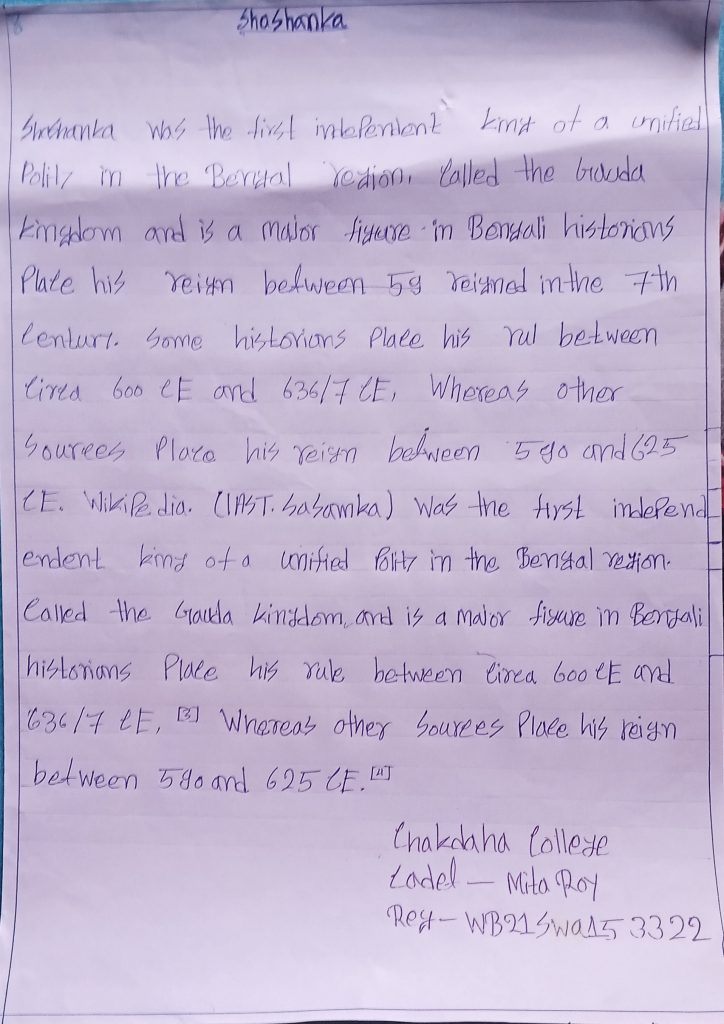 Shashanka
Shashanka was the first independent king of a unified
Polity in the Bengal region, Called the Gauda
kingdom and is a major figure in Bengali historians
Place his reign between 59 reigned in the 7th
Century. Some historians Place his rul between
Circa 600 CE and 636/7 CE, Whereas other
Sources Place his reign between 590 and 625
CE. Wikipedia. (IAST. Sasamka) was the first independ
endent king of a unified Polity in the Bengal region.
Called the Gauda kingdom, and is a major figure in Bengali
historians Place his rule between Circa 600 CE and
636/7 CE, [3] Whereas other Sources Place his reign
between 590 and 625 CE. [4]
Chakdaha College
Cadet — Mita Roy
Reg — WB21SWA153322